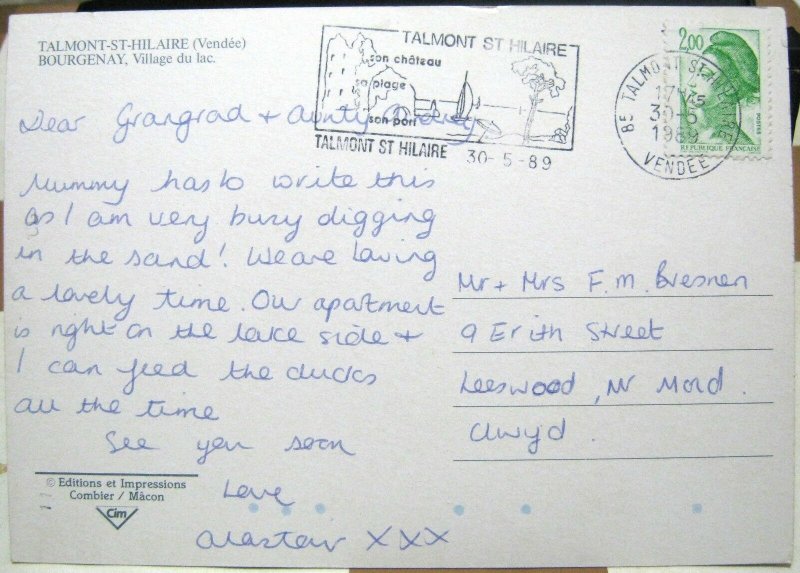 TALMONT-ST-HILAIRE (Vendée)
BOURGENAY, Village du lac.
TALMONT ST HILAIRE
son château
sa plage
son port
TALMONT ST HILAIRE 30-5-89
85 TALMONT ST HILAIRE
17H45
30-5
1989
VENDEE
2,00
POSTES
REPUBLIQUE FRANÇAISE
Dear Grangrad + Aunty
Mummy has to write this
as I am very busy digging
in the sand! We are having
a lovely time. Our apartment
is right on the lake side +
I can feed the ducks
all the time
See you soon
Love
Alastair XXX
Mr + Mrs F.M. Bresnen
9 Erith Street
Leeswood, Nr Mold.
Clwyd.
© Editions et Impressions
Combier / Mâcon
Cim